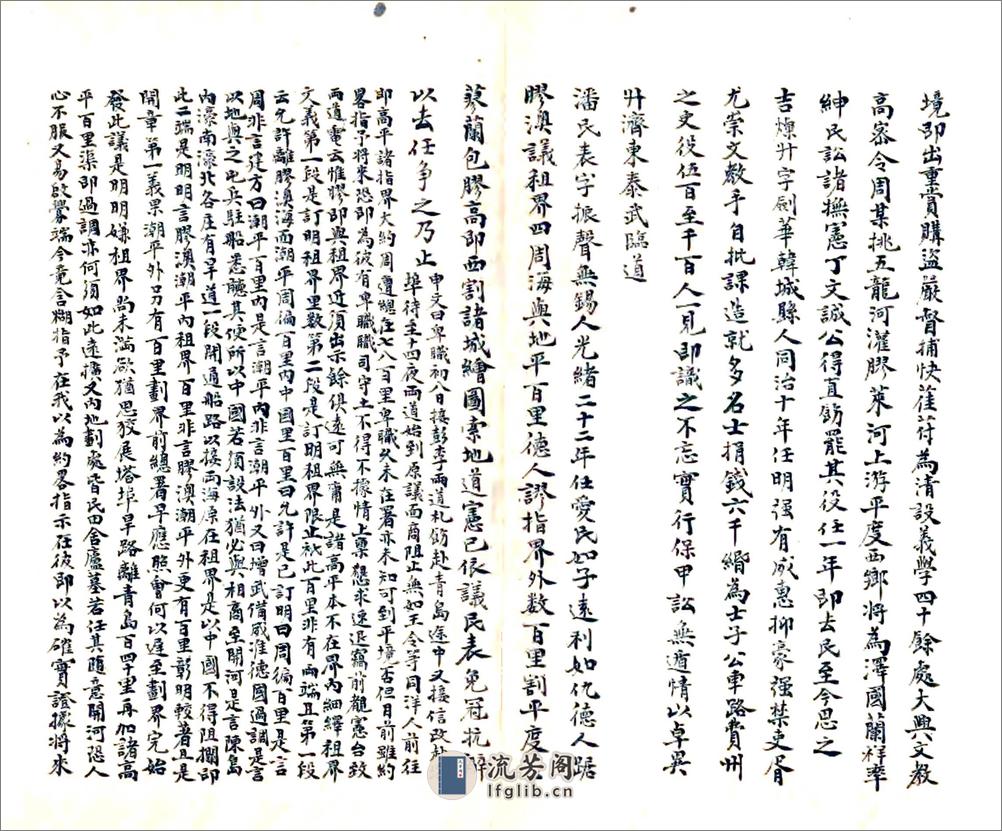 境即出重賞購盜嚴督捕快萑苻為清設義學四十餘處大興文教
高密令周某挑五龍河灌膠萊河上游平度西鄉將為澤國蘭祥率
紳民訟諸撫憲丁文誠公得直飭罷其役任一年即去民至今思之
吉燦升字劍華韓城縣人同治十年任明强有威惠抑豪强禁吏胥
尤崇文教手自批課造就多名士捐錢六千緡為士子公車路費州
之吏役伍百至千百人一見即識之不忘實行保甲訟無遁情以卓異
升濟東泰武臨道
潘民表字振聲無錫人光緒二十二年任愛民如子遠利如仇德人踞
膠澳議租界四周海與地平百里德人謬指界外數百里割平度
蓼蘭包膠高即西割諸城繪圖索地道憲已依議民表免冠抗辭
以去任争之乃止
申文曰卑職初八日接彭李兩道札飭赴青島途中又接信改赴
華待至十四夜兩道始到原議面商阻止無如王令等同洋人前往
即高平諸指界大約周遭總在七八百里卑職久未在署亦未知可到平境否但目前雖約
畧指予將來恐即為彼有卑職職司守土不得不據情上稟懇求速退竊前龍憲台致
兩道電云惟膠即與租界近須出示餘俱遠可無庸是諸高平本不在界內細繹租界
文義第一段是訂明租界里數第二段是訂明租界限止祇此百里非有兩端且第一段
云允許離膠澳海面潮平周徧一百里內中國里一百里曰允許是已訂明曰周徧百里是言
周非言建方曰潮平百里內是言潮平內非言潮平外又曰增武備威淮德國過調是言
以地與之屯兵駐船悉聽其便所以中國若須設法猶必與相商至開河是言陳島
內濠南濠北各庄有旱道一段開通船路以接兩海原在租界是以中國不得阻攔即
此二端是明明言膠澳潮平內租界百里非言膠澳潮平外更有百里彰明較著且是
開章第一義果潮平外另有百里劃界前總署早應照會何以遲至劃界完始
發此議是明明嫌租界尚未滿欲猶思狡展塔埠旱路離青島百四十里再加諸高
平百里渠即過調亦何須如此遠擴又內地劃處皆民田舍廬墓若任其隨意開河恐人
心不服又易啟釁端今竟含糊指予在我以為約畧指示在彼即以為確實證據將來
流芳阁
lfglib.cn